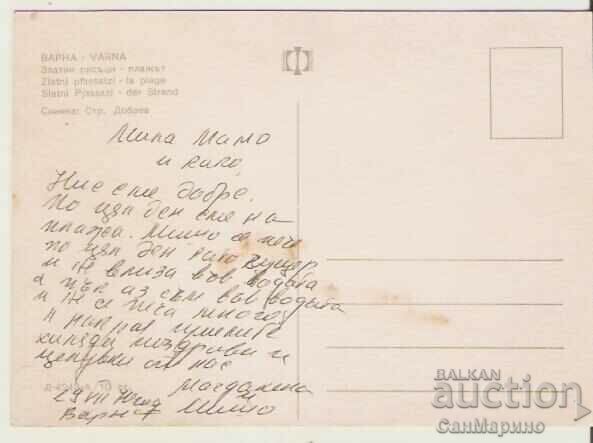 ВАРНА - VARNA
Златни пясъци - плажът
Zlatni pjassatzi - la plage
Slatni Pjassazi - der Strand
Снимка: Стр. Добрев
Мила Мамо
и како,
Ние сме добре.
По цял ден сме на
плажа. Мишо се пече
по цял ден като гущер
и не влиза във водата
а пък аз съм във водата
и не се пека много
поздрави и
целувки от нас
Магдалена
Мишо
29 VIII
Варна
BALKAN
auction
СанМарино